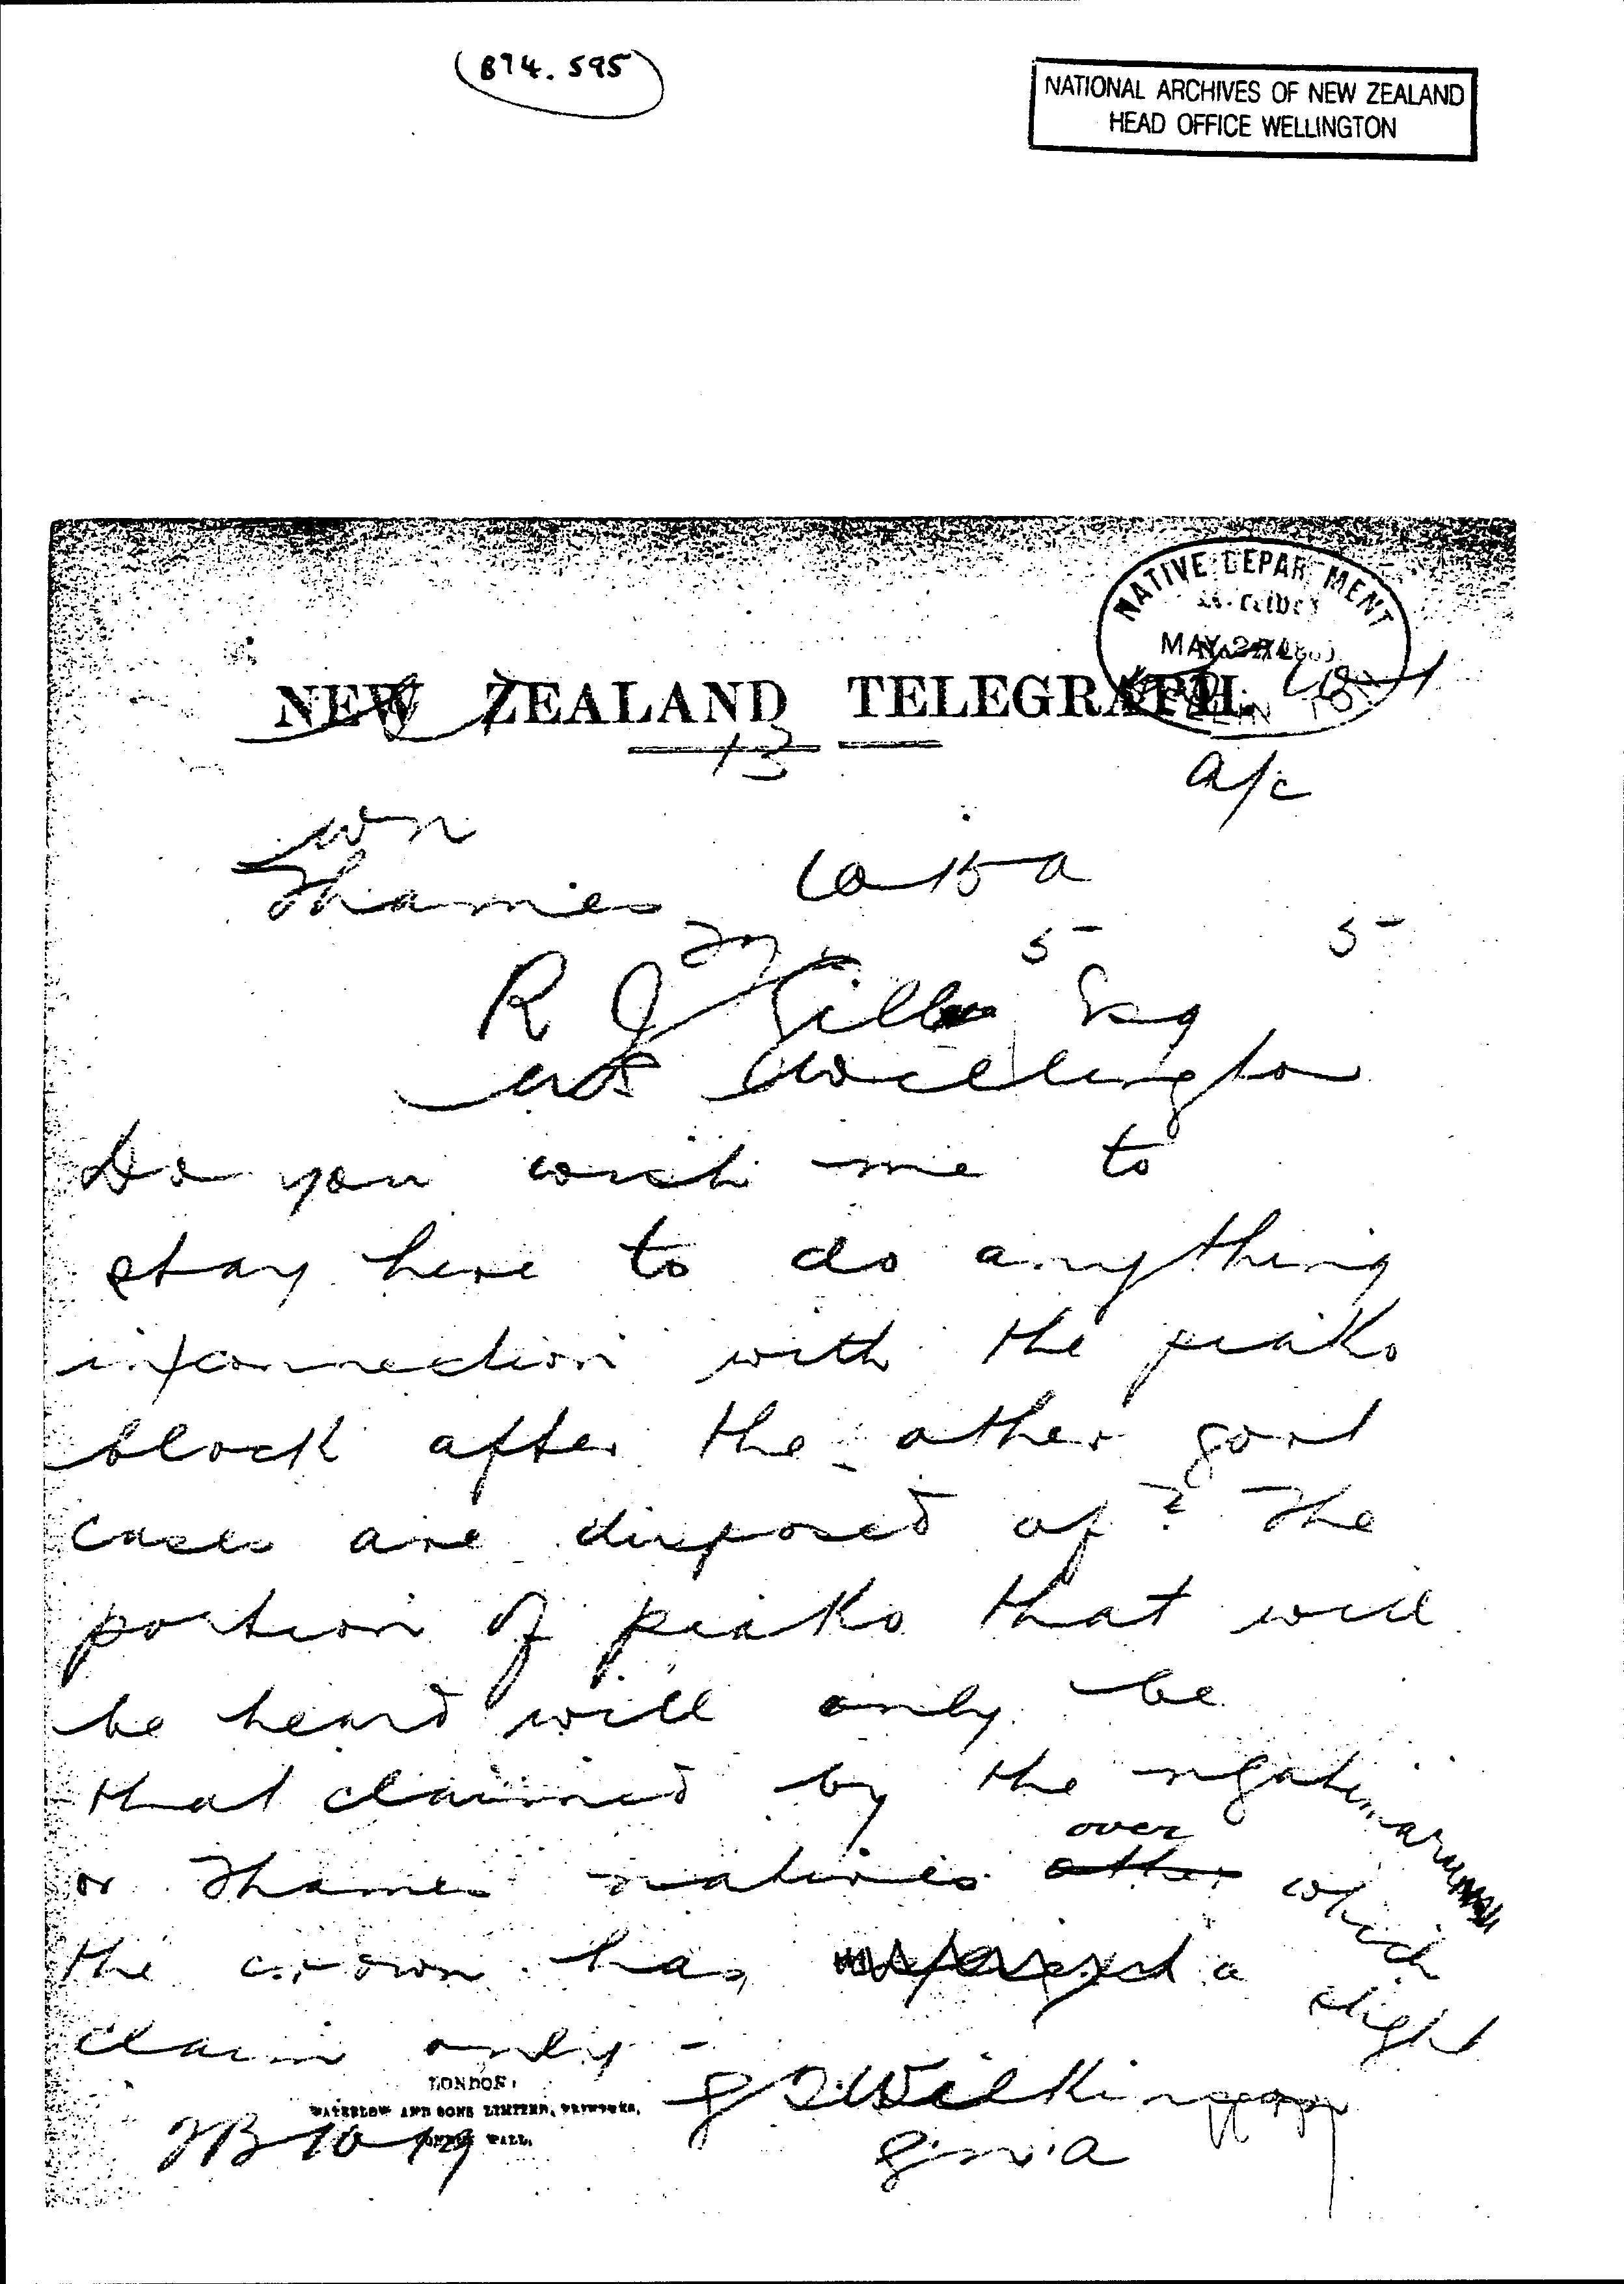 (B94.595)
NATIONAL ARCHIVES OF NEW ZEALAND
HEAD OFFICE WELLINGTON
NATIVE DEPARTMENT
MAY
NEW ZEALAND TELEGRAPH.
13
a/c
Wn
Thames
5 5
R J Gill Esq
Wellington
Do you wish me to
stay here to do anything
in/connection with the piako
block after the other govt
cases are disposed of? The
portion of piako that will
be heard will only be
that claimed by the ngatimaru
or Thames natives over which
the crown has a slight
claim only -
LONDON:
WATERLOW AND SONS LIMITED, PRINTERS,
LONDON WALL.
G T Wilkinson